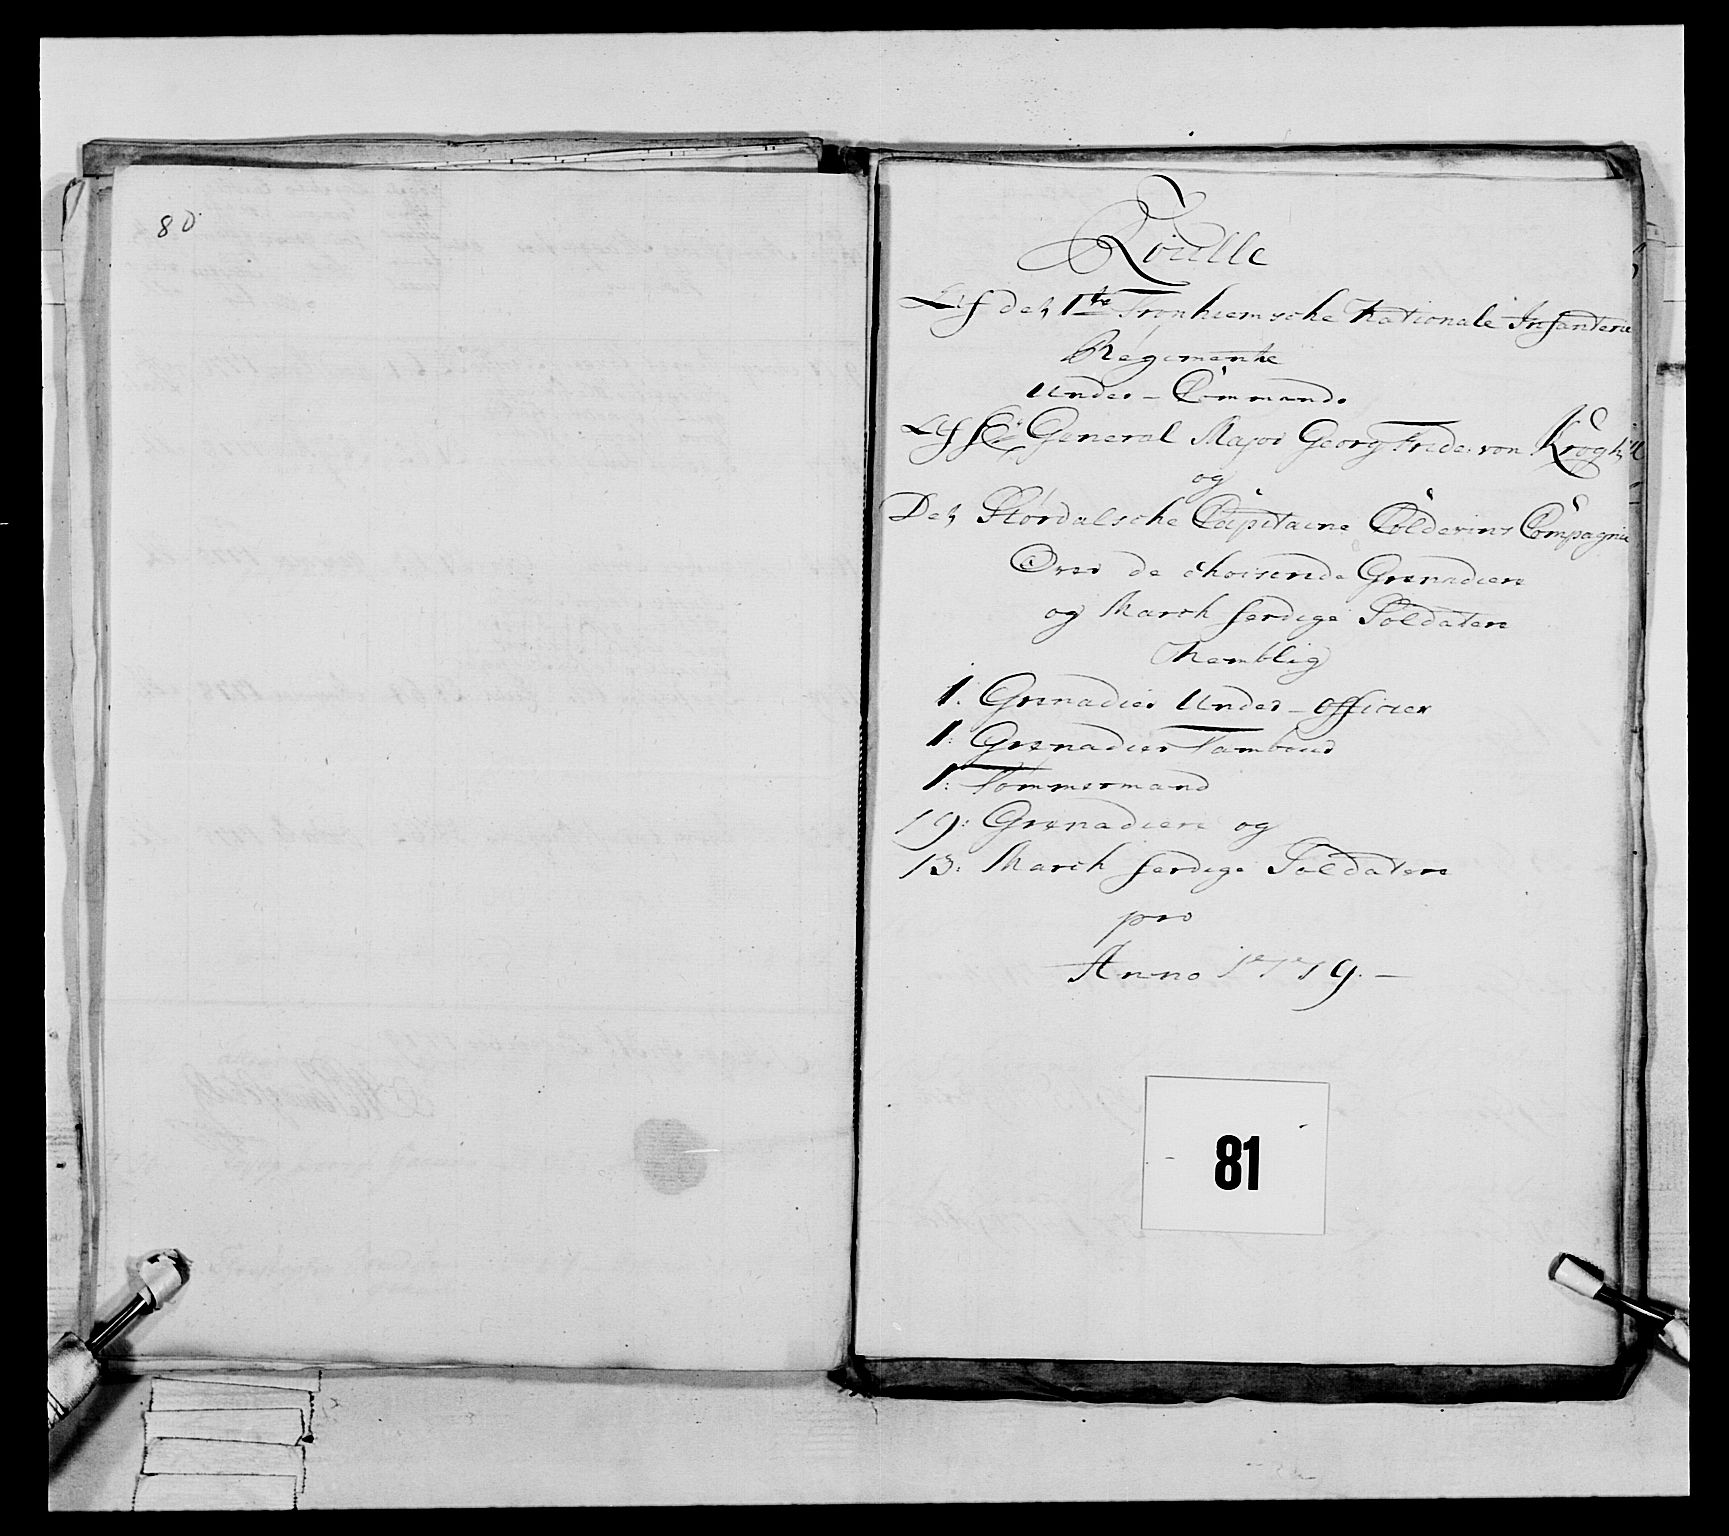 80
Roulle
Af det 1te Tronhiemsche Nationale Infanterie
Regimente
Under-Commando
Af Hr General Major Georg Frid: von Krogh
og
Det Størdalsche Capitaine Colderins Compagnie
Over de choisende Grenadiere
og March ferdige Soldatere
Nemblig
1. Grenadier Under-officier
1: Grenadier Tambour
1: Tømmermand
19: Grenadiere og
13: March ferdige Soldatere
pro
Anno 1779.-
81